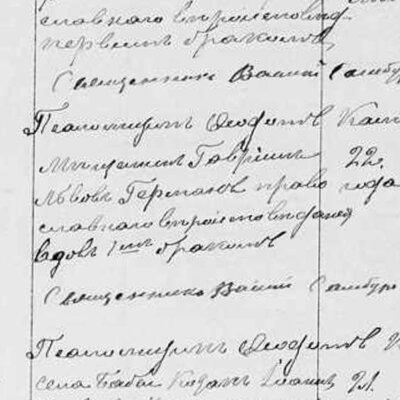 славнаго вѣроисповѣд.
первымъ бракомъ
Священникъ Василій Самбур
Псаломщикъ Ѳеодотовъ
Мѣщанинъ Гавріилъ 22.
Львовъ Германовъ право года
славнаго вѣроисповѣданія
вдовъ 1мъ бракомъ
Священникъ Василій Самбур
Псаломщикъ Ѳеодотовъ
села Бабаи Козакъ Іоаннъ 21.